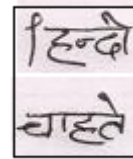 हिन्दो
चाहते